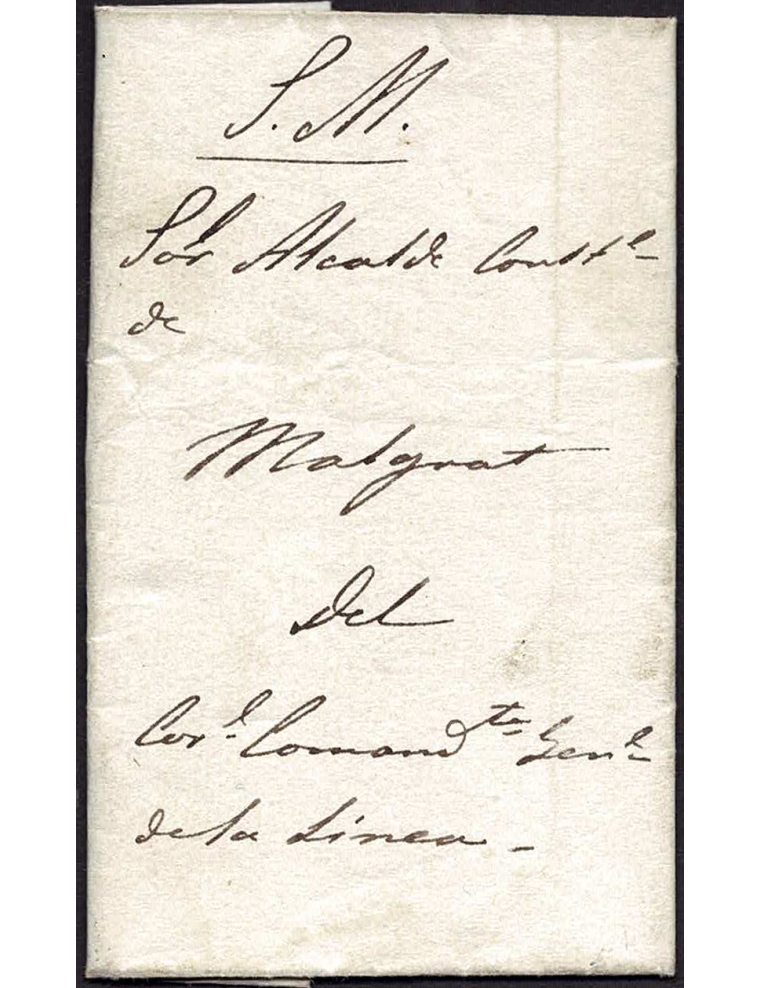 S. M.
Sor Alcalde Constl
de
Malgrat
Del
Corl. Comandte Genl
de la Linea -